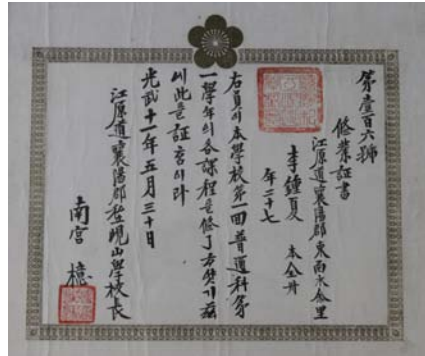 第壹百六號
修業証書
江原道襄陽郡東面水余里
李鍾夏 本全州
年二十七
右員이本學校第一回普通科第
一學年의各課程을修了하얏기玆
에此를証흠이라
光武十一年五月三十日
江原道襄陽郡峴山學校長
南宮檍